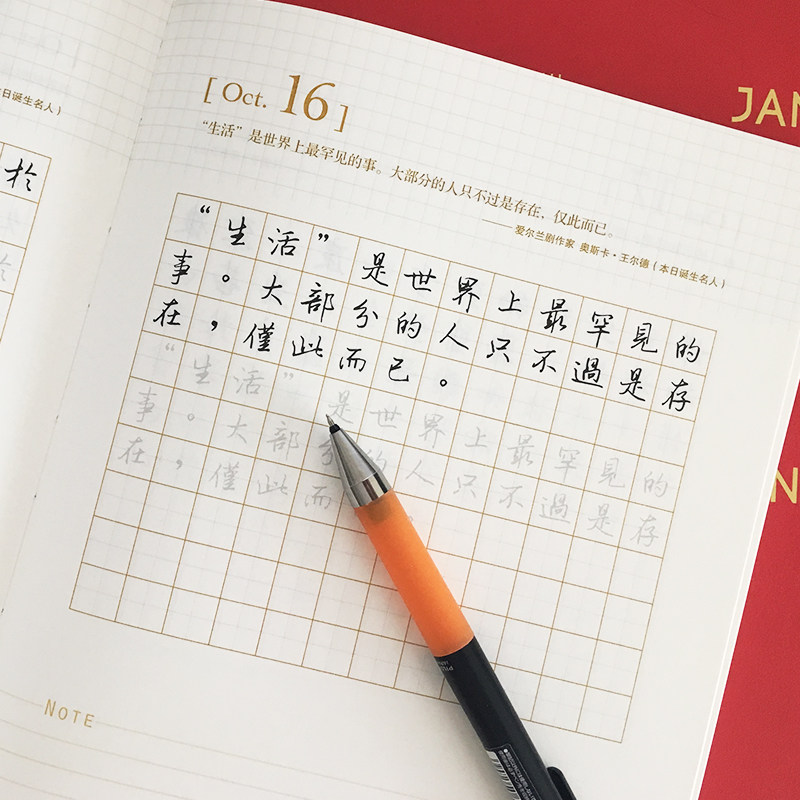 本日诞生名人）
於
[ Oct. 16 ]
“生活”是世界上最罕见的事。大部分的人只不过是存在，仅此而已。
——爱尔兰剧作家 奥斯卡·王尔德（本日诞生名人）
“生活”是世界上最罕見的
事。大部分的人只不過是存
在，僅此而已。
“生活”是世界上最罕見的
事。大部分的人只不過是存
在，僅此而已。
NOTE
JAN
N